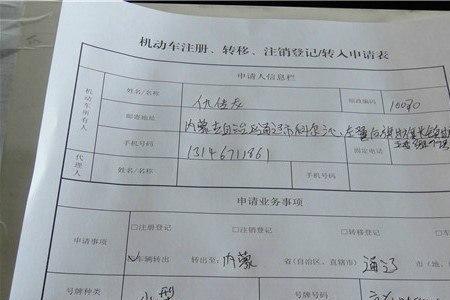 机动车注册、转移、注销登记/转入申请表
申请人信息栏
机动车所有人
姓名/名称 仇传友 邮政编码
邮寄地址 内蒙古自治区通辽市科尔沁左翼后旗
手机号码 13146711861 固定电话
代理人 姓名/名称 手机号码
申请业务事项
申请事项 □注册登记 □注销登记 □转移登记
车辆转出 转出至: 内蒙 省(自治区、直辖市) 通辽 市(地、
号牌种类 小型 号牌号码